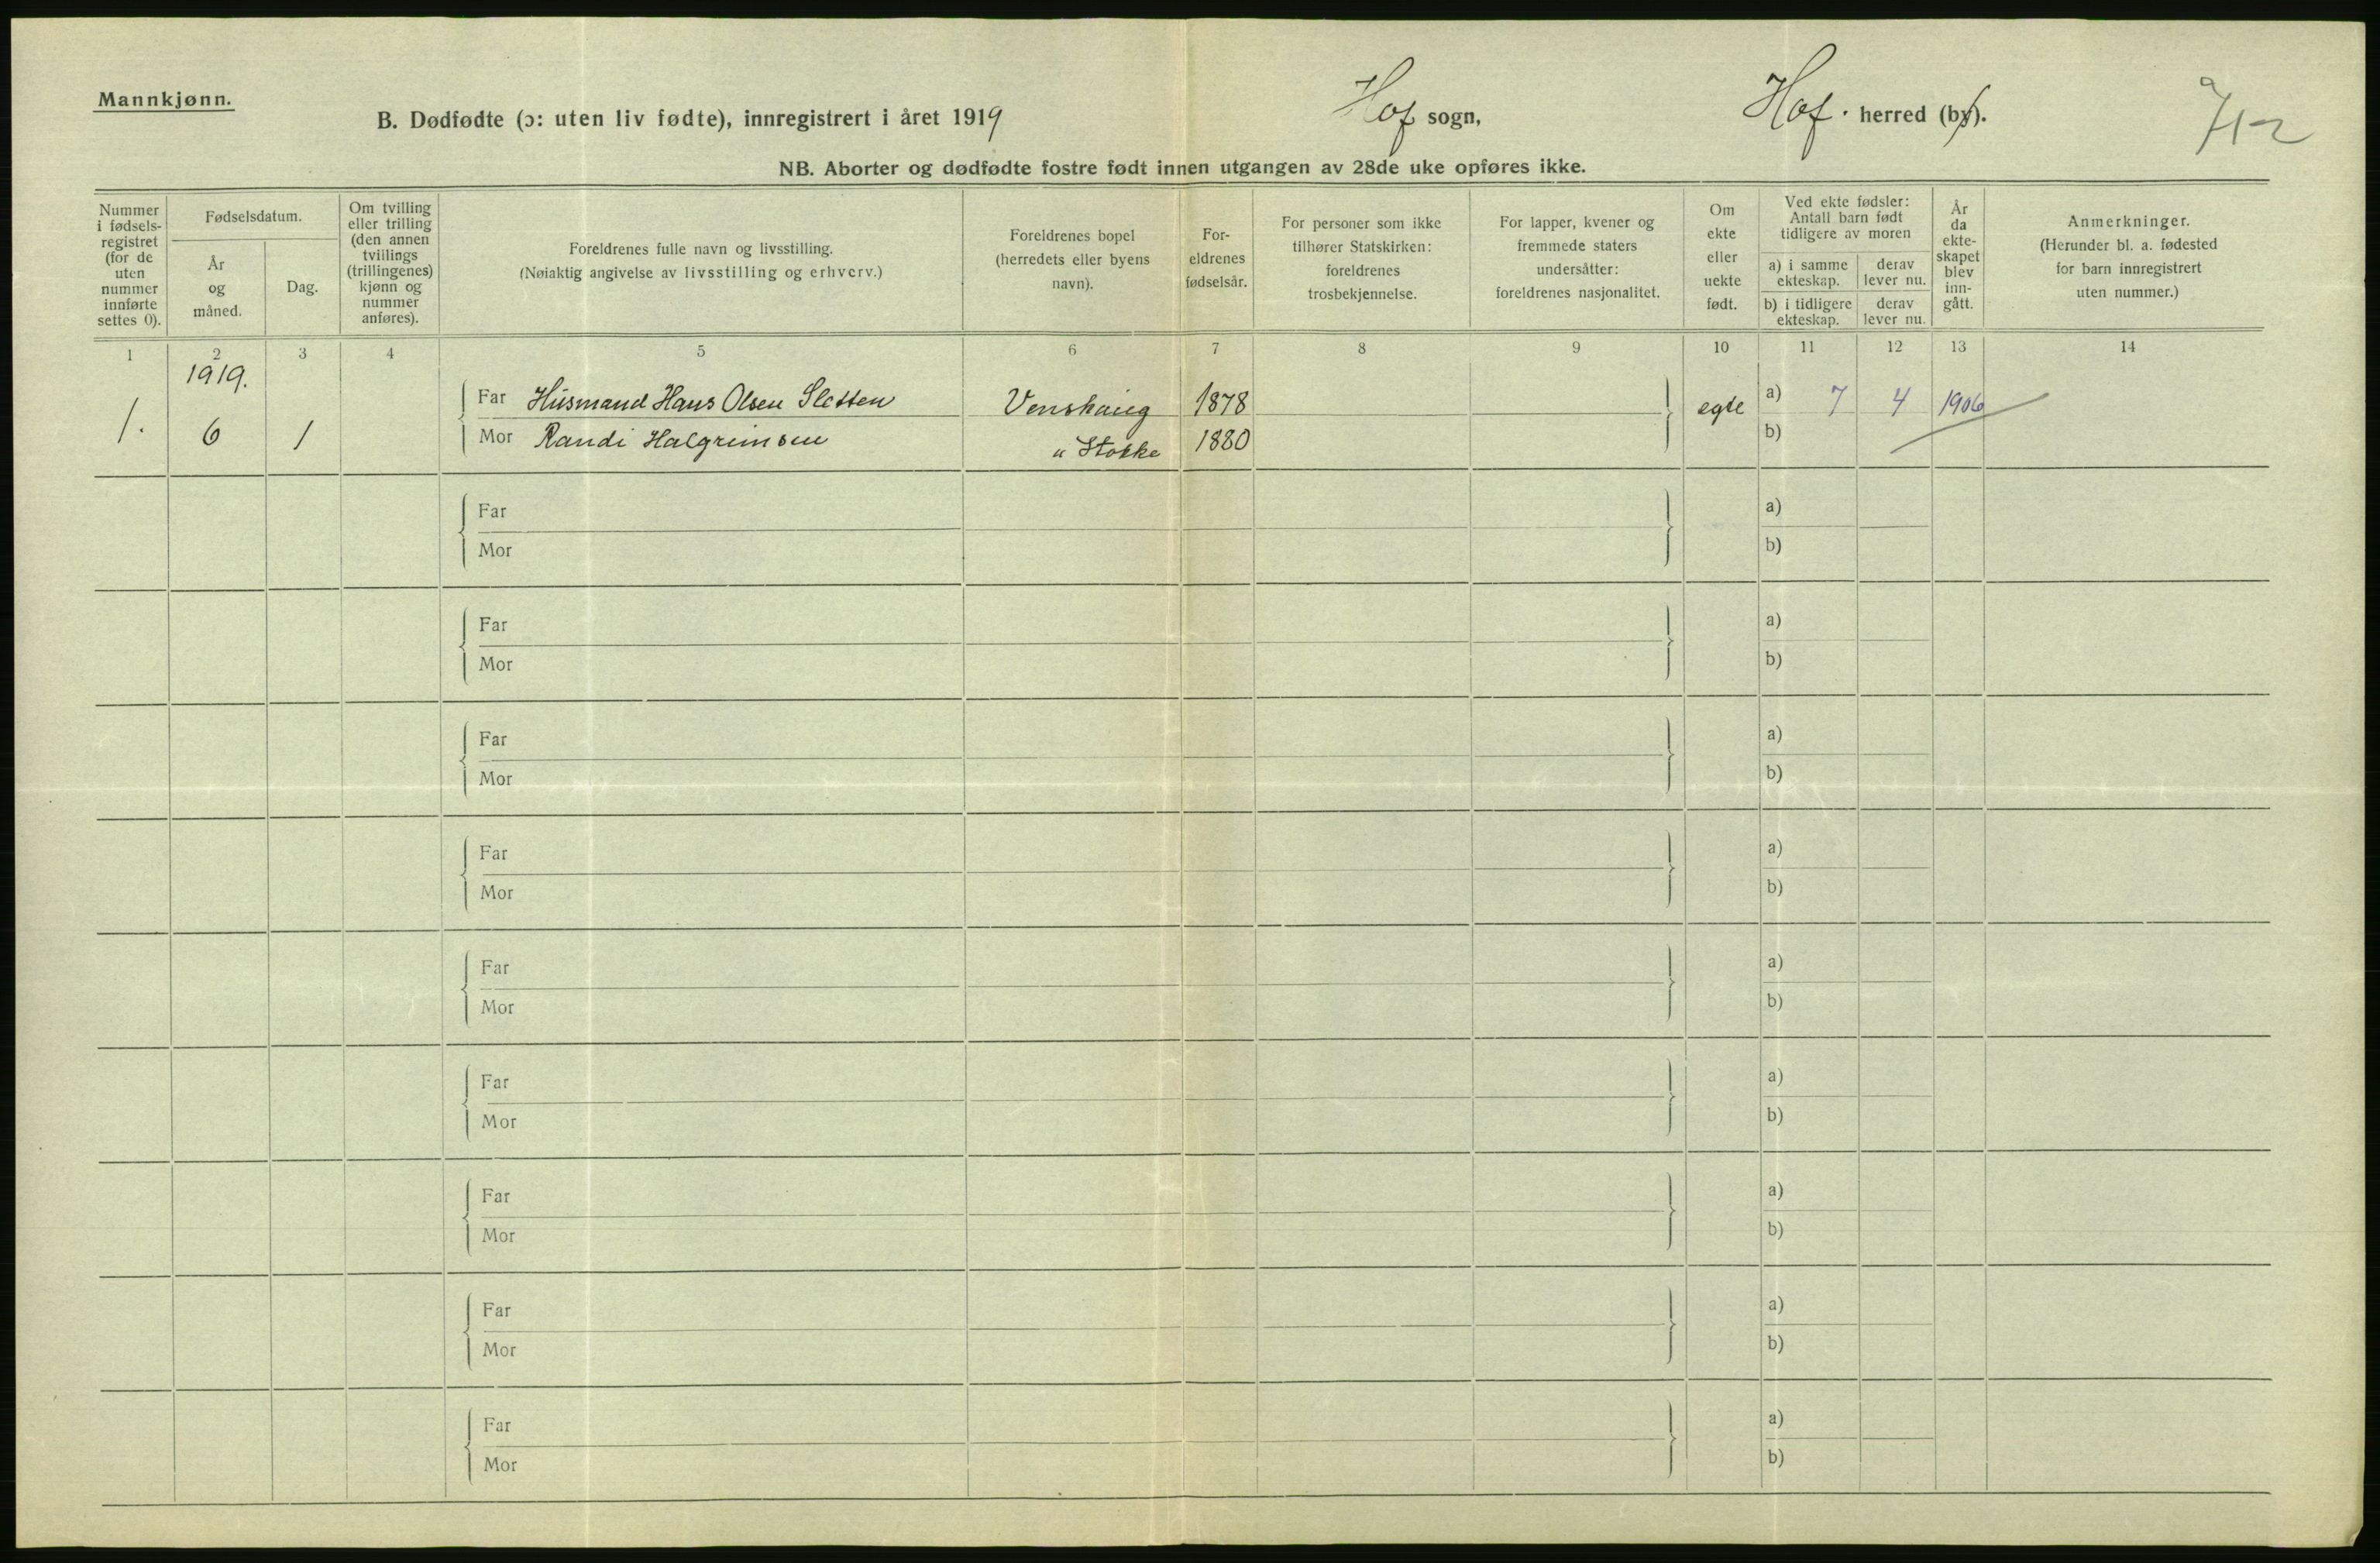 Mannkjønn.
B. Dødfødte (ɔ: uten liv fødte), innregistrert i året 1919
Hof sogn,
Hof. herred (by).
712
NB. Aborter og dødfødte fostre født innen utgangen av 28de uke opføres ikke.
Nummer
i fødsels-
registret
(for de
uten
nummer
innførte
settes 0).
Fødselsdatum.
År
og
måned.
Dag.
Om tvilling
eller trilling
(den annen
tvillings
(trillingenes)
kjønn og
nummer
anføres).
Foreldrenes fulle navn og livsstilling.
(Nøiaktig angivelse av livsstilling og erhverv.)
Foreldrenes bopel
(herredets eller byens
navn).
For-
eldrenes
fødselsår.
For personer som ikke
tilhører Statskirken:
foreldrenes
trosbekjennelse.
For lapper, kvener og
fremmede staters
undersåtter:
foreldrenes nasjonalitet.
Om
ekte
eller
uekte
født.
Ved ekte fødsler:
Antall barn født
tidligere av moren
a) i samme
ekteskap.
derav
lever nu.
b) i tidligere
ekteskap.
derav
lever nu.
År
da
ekte-
skapet
blev
inn-
gått.
Anmerkninger.
(Herunder bl. a. fødested
for barn innregistrert
uten nummer.)
1 2 3 4 5 6 7 8 9 10 11 12 13 14
1919.
1. 6 1
Far Husmand Hans Olsen Sletten Venshaug 1878 egte a) 7 4 1906
Mor Randi Halgrimsen " Stokke 1880 b)
Far a)
Mor b)
Far a)
Mor b)
Far a)
Mor b)
Far a)
Mor b)
Far a)
Mor b)
Far a)
Mor b)
Far a)
Mor b)
Far a)
Mor b)
Far a)
Mor b)